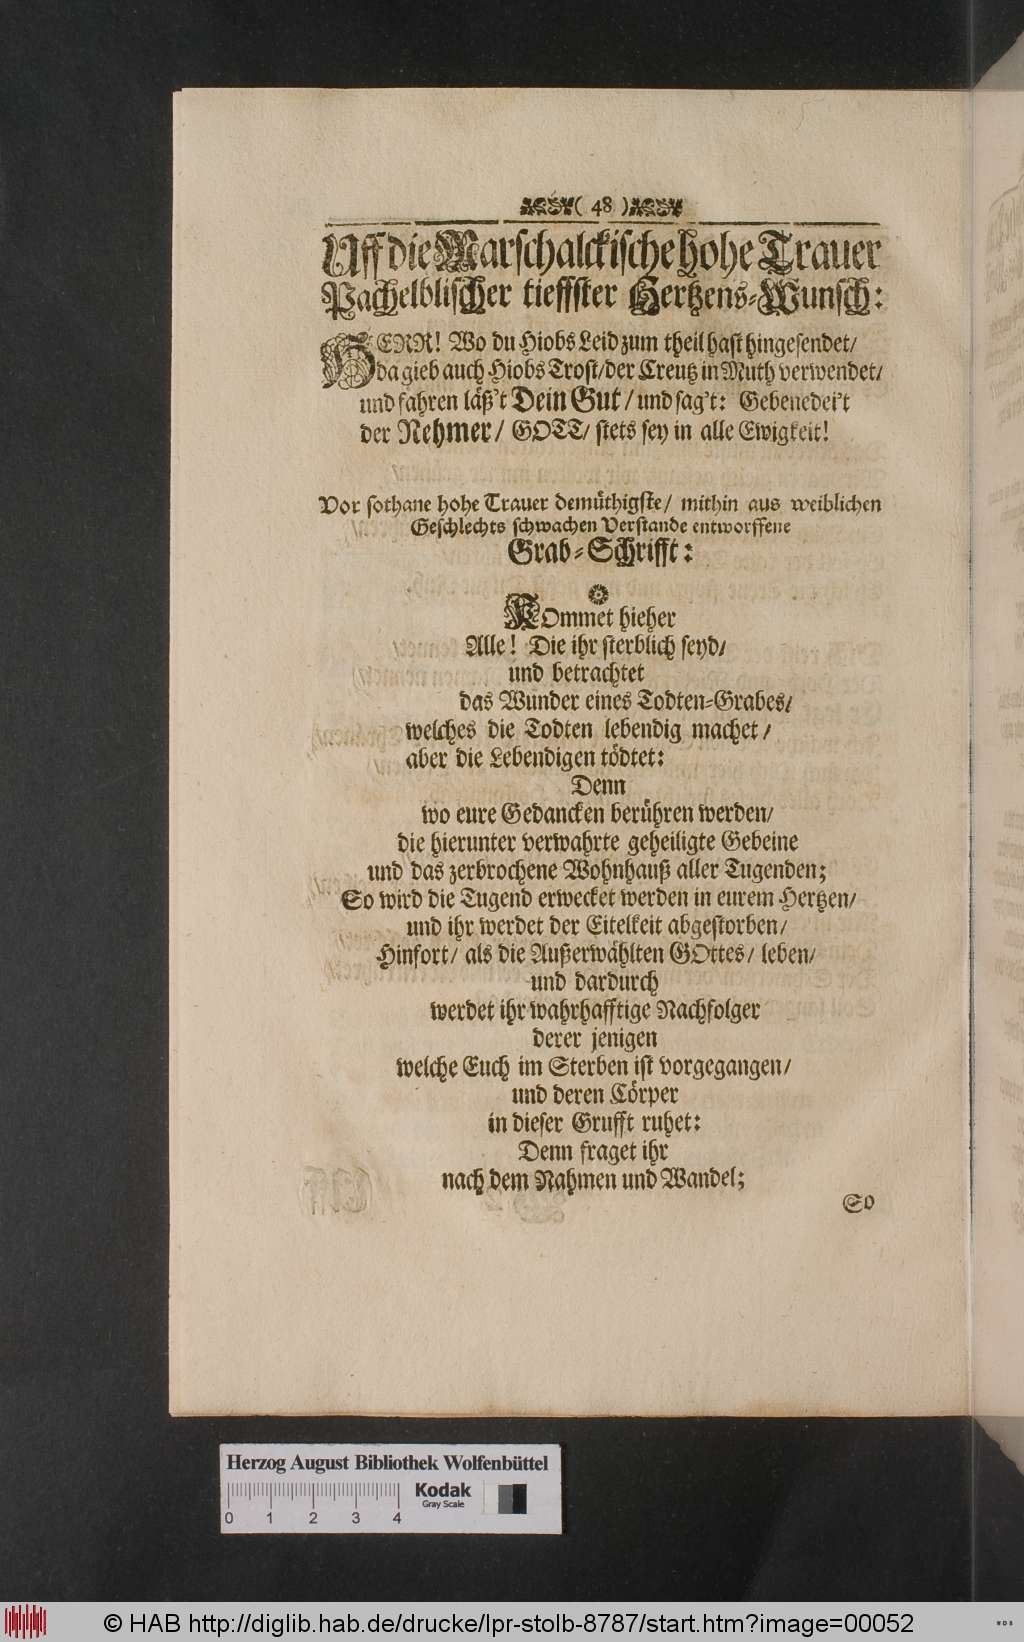 ( 48 )
Uff die Marschalckische hohe Trauer
Pachelblischer tieffster Hertzens-Wunsch:
HERR! Wo du Hiobs Leid zum theil hast hingesendet/
da gieb auch Hiobs Trost/der Creutz in Muth verwendet/
und fahren läß't Dein Gut / und sag't: Gebenedei't
der Nehmer/ GOTT/ stets sey in alle Ewigkeit!
Vor sothane hohe Trauer demüthigste/ mithin aus weiblichen
Geschlechts schwachen Verstande entworffene
Grab-Schrifft:
KOmmet hieher
Alle! Die ihr sterblich seyd/
und betrachtet
das Wunder eines Todten-Grabes/
welches die Todten lebendig machet /
aber die Lebendigen tödtet:
Denn
wo eure Gedancken berühren werden/
die hierunter verwahrte geheiligte Gebeine
und das zerbrochene Wohnhauß aller Tugenden;
So wird die Tugend erwecket werden in eurem Hertzen/
und ihr werdet der Eitelkeit abgestorben/
Hinfort/ als die Außerwählten GOttes/ leben/
und dardurch
werdet ihr wahrhafftige Nachfolger
derer jenigen
welche Euch im Sterben ist vorgegangen/
und deren Cörper
in dieser Grufft ruhet:
Denn fraget ihr
nach dem Nahmen und Wandel;
So
Herzog August Bibliothek Wolfenbüttel
Kodak
Gray Scale
0 1 2 3 4
© HAB http://diglib.hab.de/drucke/lpr-stolb-8787/start.htm?image=00052